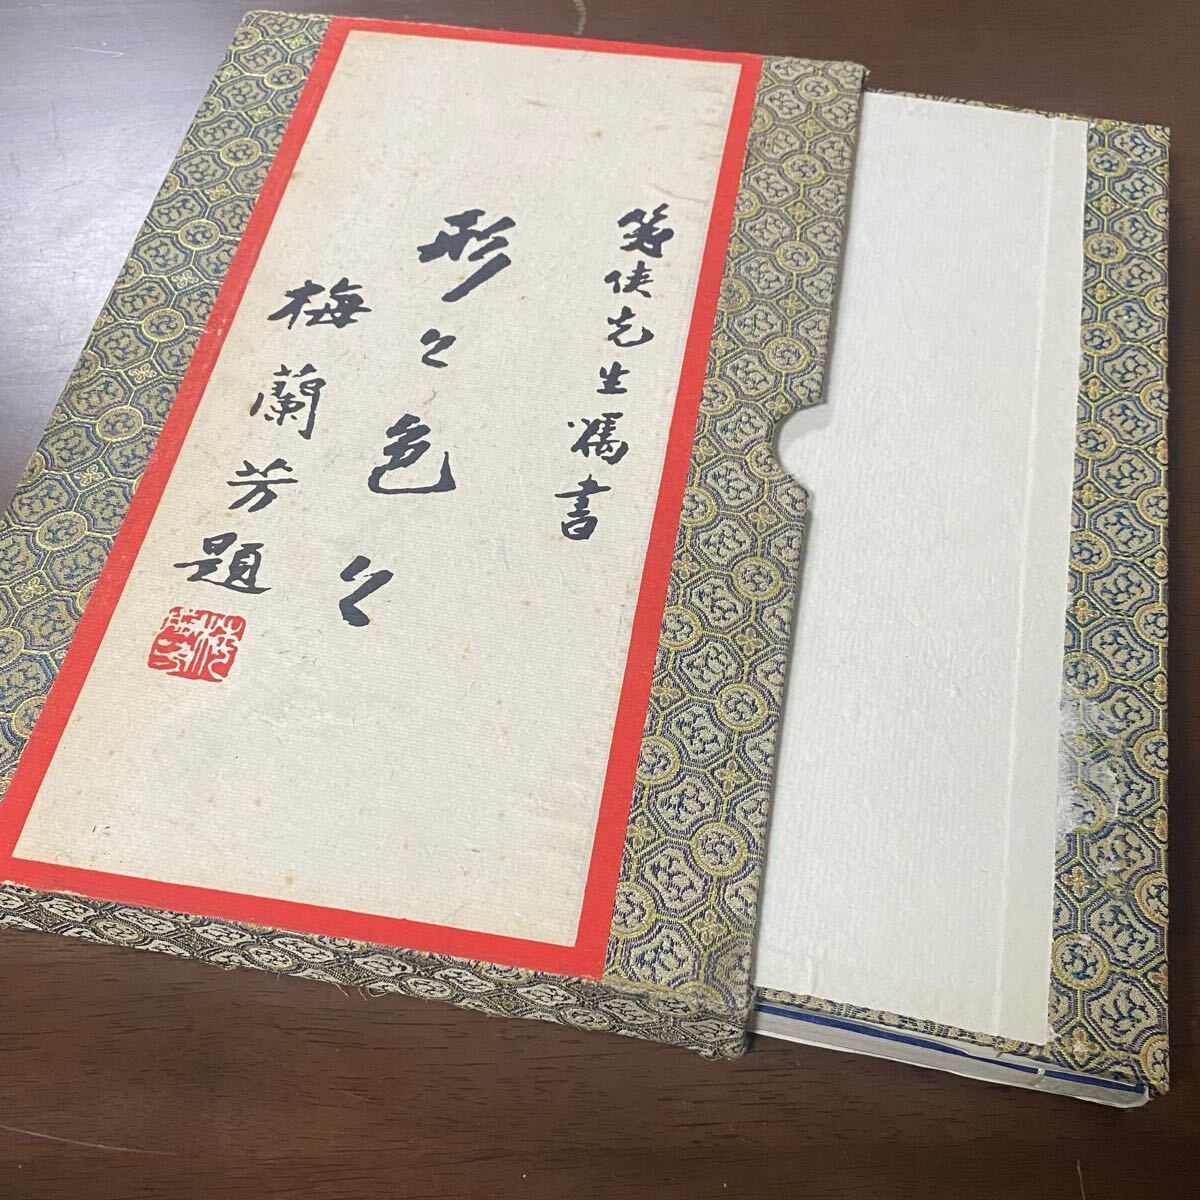 笏侠先生嘱書
形々色々
梅蘭芳題